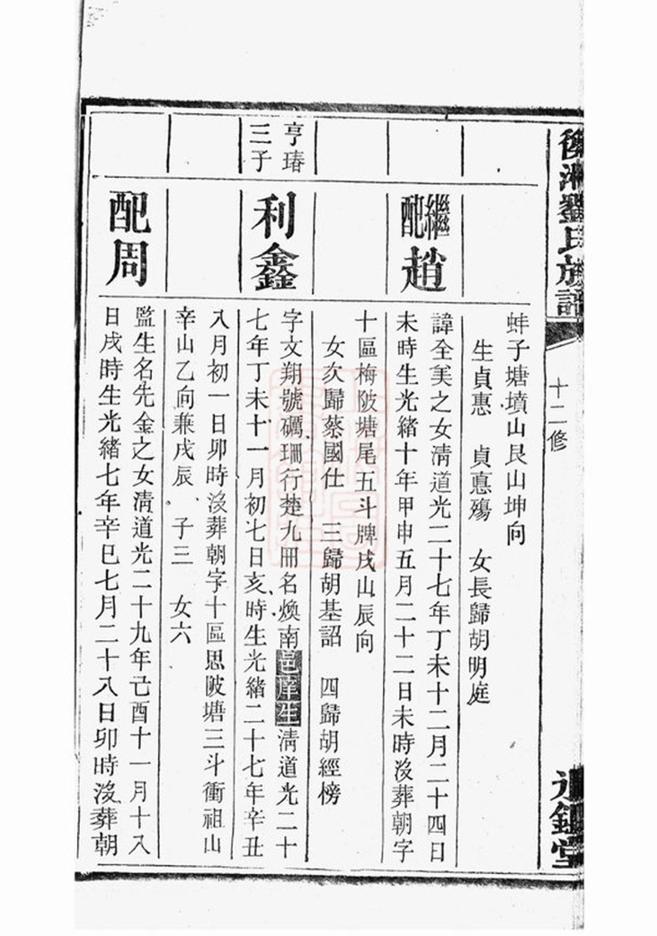 劉氏族譜
十二修
蚌子塘墳山艮山坤向
生貞惠 貞憙殤 女長歸胡明庭
繼配趙
諱全美之女清道光二十七年丁未十二月二十四日
未時生光緒十年甲申五月二十二日未時沒葬朝字
十區梅陂塘尾五斗牌戌山辰向
女次歸蔡國仕 三歸胡基詔 四歸胡經榜
亨瑃
三子
利鑫
字文翔號礪珊行楚九冊名煥南邑庠生清道光二十
七年丁未十一月初七日亥時生光緒二十七年辛丑
八月初一日卯時沒葬朝字十區思陂塘三斗衝祖山
辛山乙向兼戌辰 子三 女六
配周
監生名先金之女清道光二十九年己酉十一月十八
日戌時生光緒七年辛巳七月二十八日卯時沒葬朝